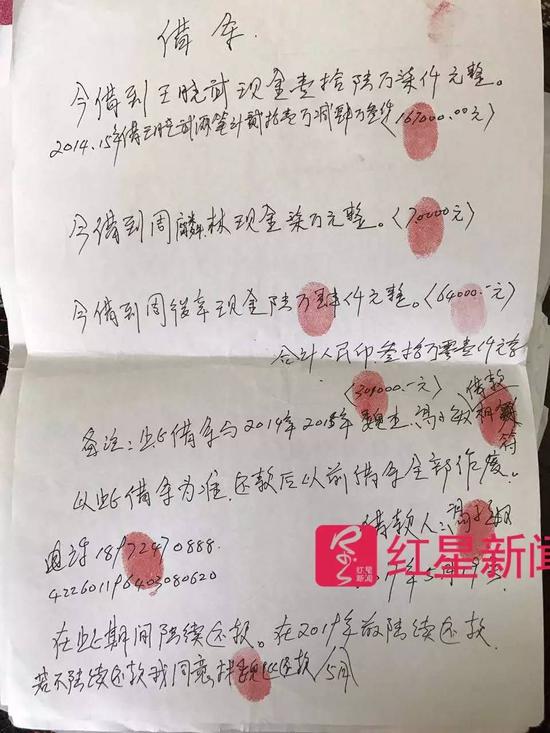 借条.
今借到王晓武现金壹拾陆万柒仟元整。
2014.15年借王晓武两笔计贰拾壹万 (167000.00元)
今借到周麟林现金柒万元整。(70000元)
今借到周俊幸现金陆万肆仟元整。(64000.-元)
合计人民币叁拾万零壹仟元台
(301000.-元)
备注:此借条与2014年2015年魏杰、冯 借款相符
以此借条为准,还款后以前借条全部作废。
借款人:冯
电话 18972470888.
年5月19日
422601196403080620
在此期间陆续还款。在2019年前陆续还款
若不陆续还款我同意 还款 /5月
红星新闻
红星
新闻